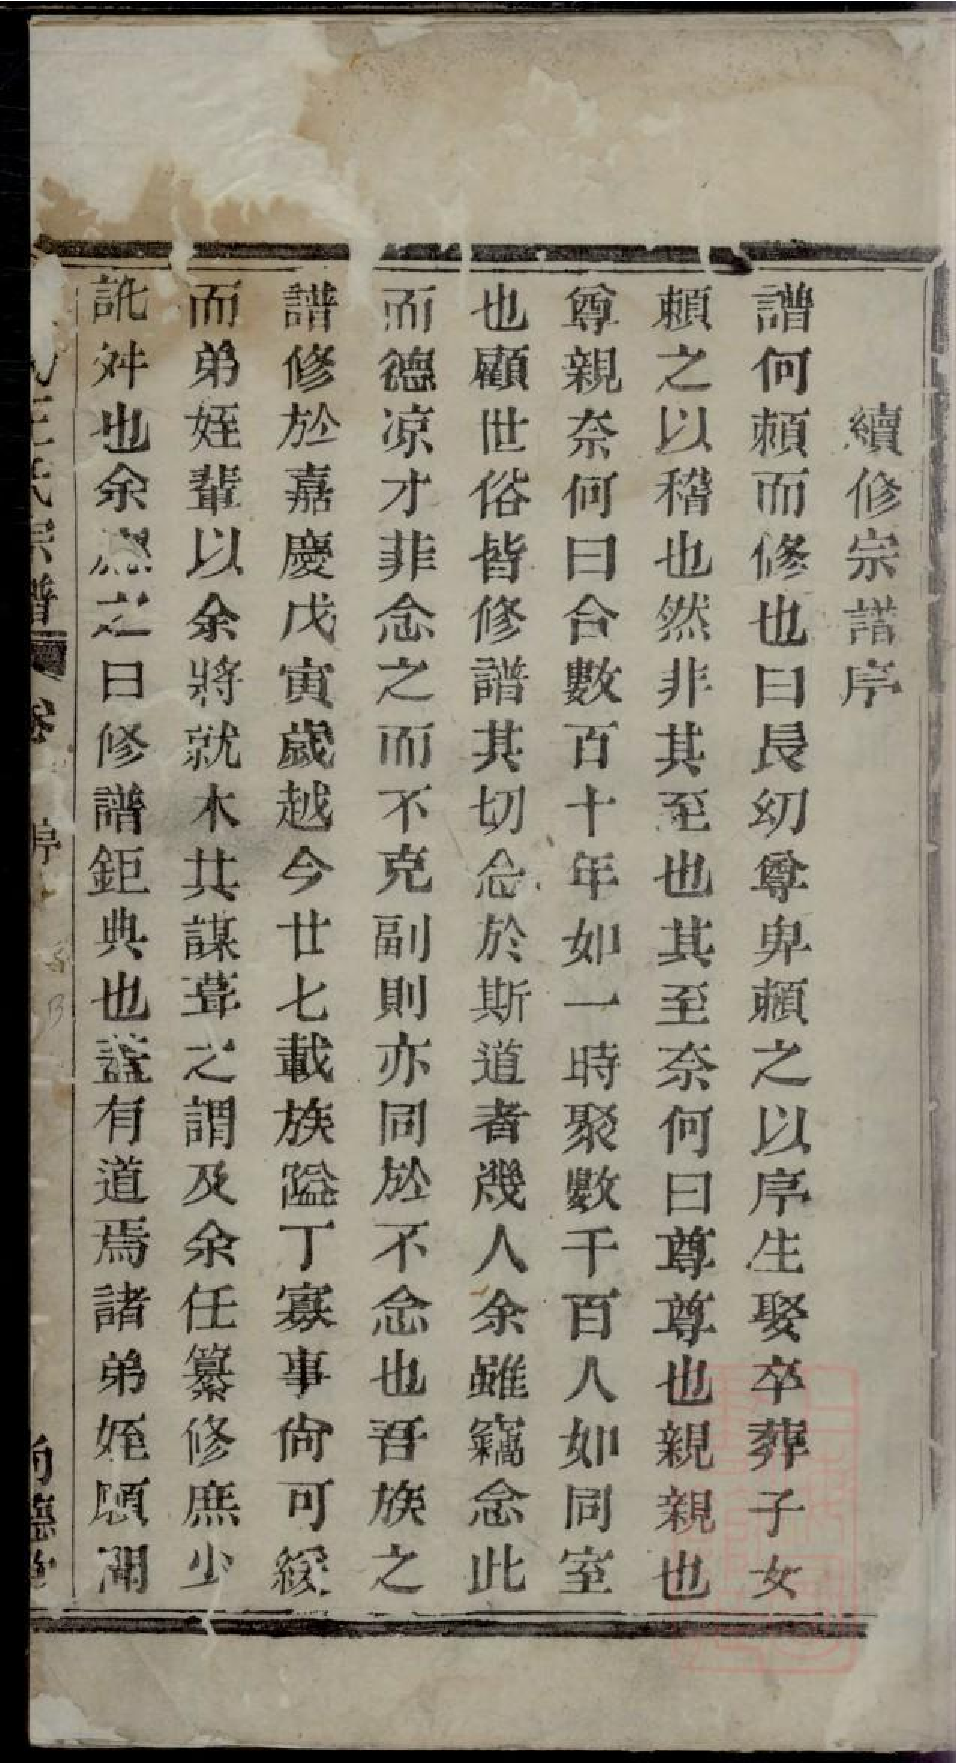 續修宗譜序
譜何頼而修也曰長幼尊卑頼之以序生娶卒葬子女
頼之以稽也然非其至也其至奈何曰尊尊也親親也
尊親奈何曰合數百十年如一時聚數千百人如同室
也顧世俗皆修譜其切念於斯道者幾人余雖竊念此
而德凉才菲念之而不克副則亦同於不念也吾族之
譜修於嘉慶戊寅歲越今廿七載族隘丁寡事尙可緩
而弟姪輩以余將就木共謀葺之謂及余任纂修庶少
訛舛也余應之曰修譜鉅典也蓋有道焉諸弟姪願聞
王氏宗譜 卷 序 尙德堂